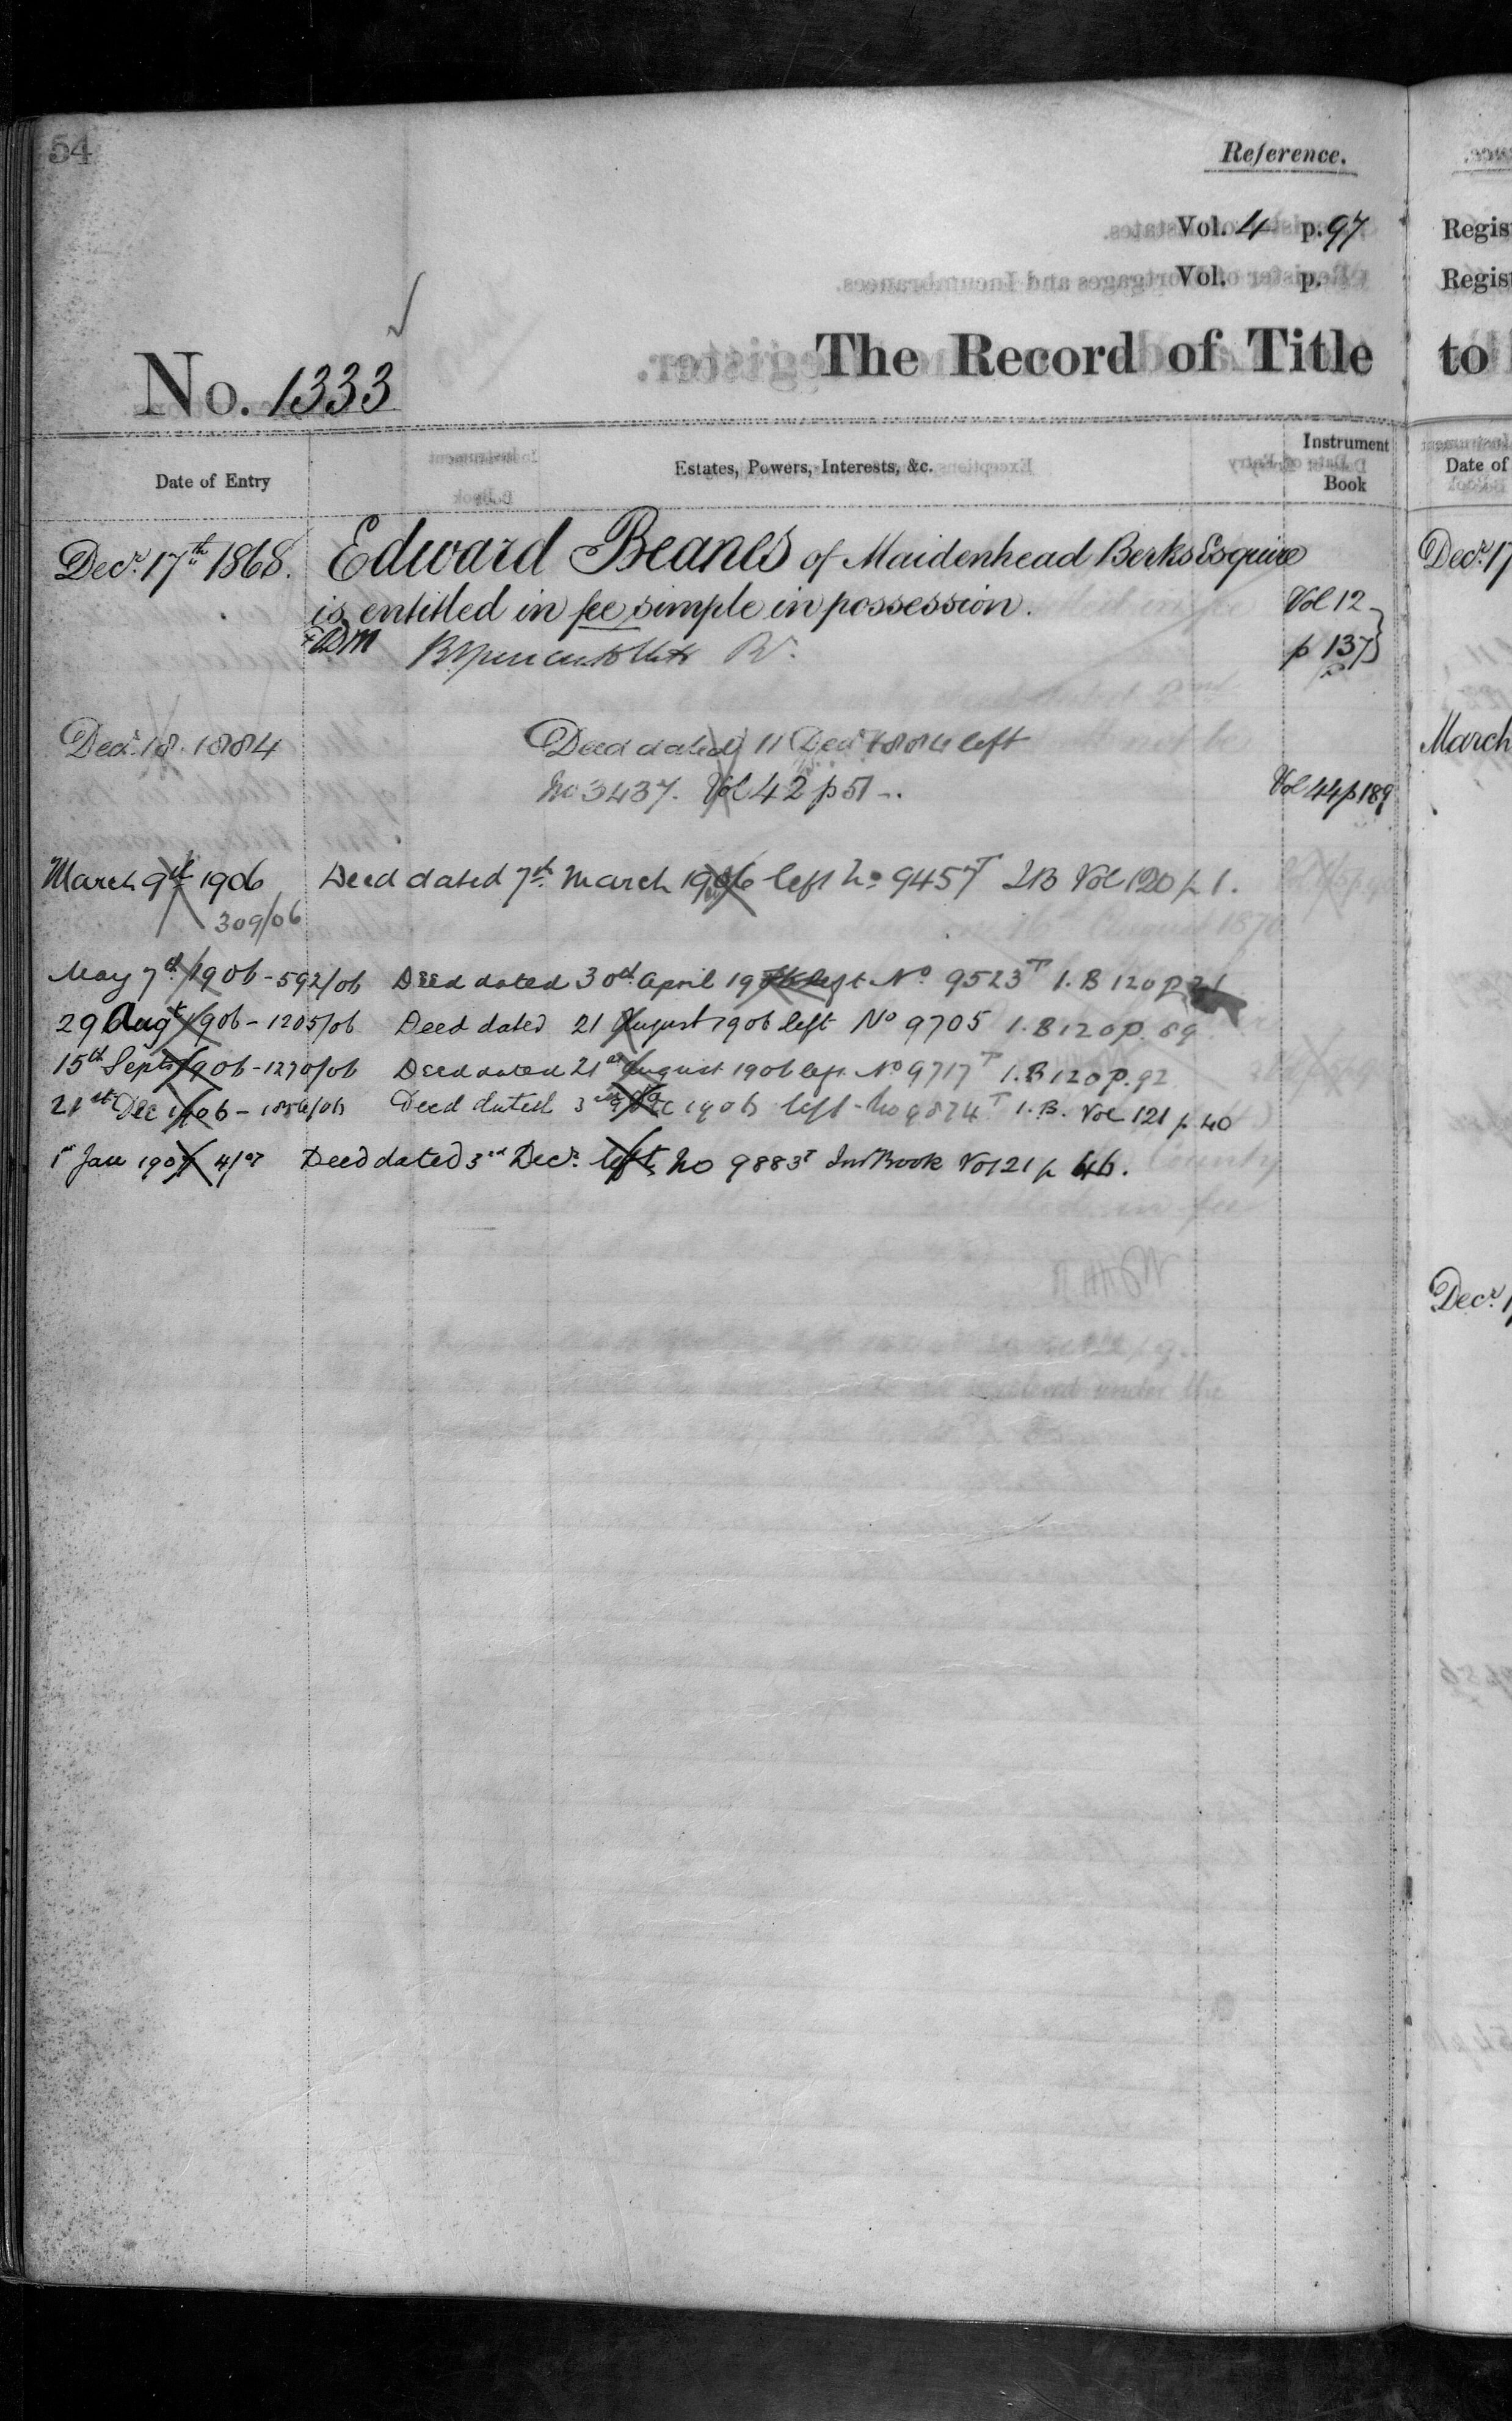 54
Reference.
Vol. 4 p. 97
Vol. p.
No. 1333
The Record of Title
Date of Entry
Estates, Powers, Interests, &c.
Instrument Book
Decr. 17th 1868.
Edward Beanes of Maidenhead Berks Esquire
is entitled in fee simple in possession.
Vol 12
p 137
Decr. 18. 1884
Deed dated 11 Decr 1884 left
No 3437. Vol 42 p 51
Vol 44 p 189
March 9th 1906 Deed dated 7th March 1906 left No 9457T I B Vol 120 p 1.
309/06
May 7th 1906 - 592/06 Deed dated 30th April 1906 left No 9523T I.B 120 p 21
29 Augt 1906 - 1205/06 Deed dated 21 August 1906 left No 9705 I.B 120 p. 89
15th Sept 1906 - 1270/06 Deed dated 21st August 1906 left No 9717T I.B 120 p. 92
21st Dec 1906 - Deed dated 3rd Dec 1906 left No 9874T I.B. Vol 121 p 40
1st Jan 1907 4/07 Deed dated 3rd Decr. left No 9883T Inst Book Vol 121 p 46.
Regis
Regist
to
Date of
Decr. 17
March
Decr. 1